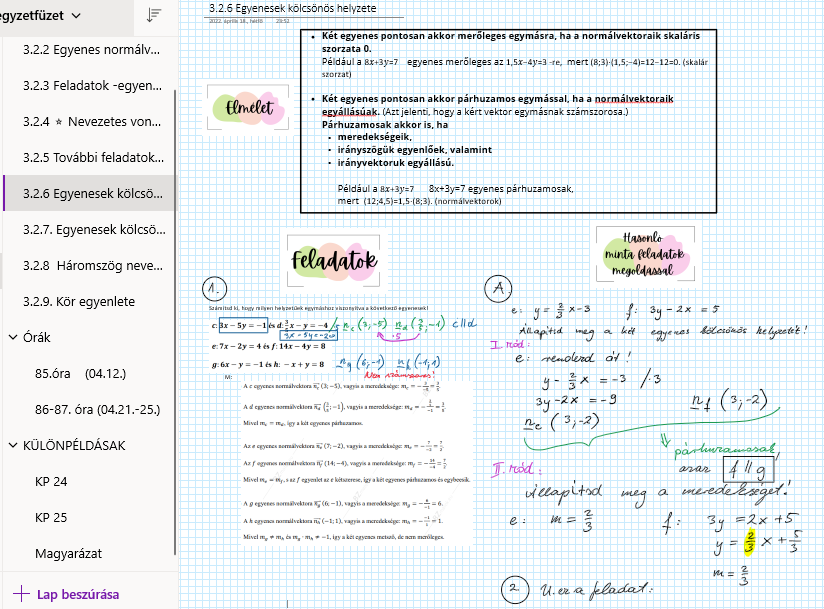 egyzetfüzet
3.2.2 Egyenes normálv...
3.2.3 Feladatok -egyen...
3.2.4 ⋆ Nevezetes von...
3.2.5 További feladatok...
3.2.6 Egyenesek kölcsö...
3.2.7. Egyenesek kölcsö...
3.2.8 Háromszög neve...
3.2.9. Kör egyenlete
Órák
85.óra (04.12.)
86-87. óra (04.21.-25.)
KÜLÖNPÉLDÁSAK
KP 24
KP 25
Magyarázat
Lap beszúrása
3.2.6 Egyenesek kölcsönös helyzete
2022. április 18., hétfő 20:52
• Két egyenes pontosan akkor merőleges egymásra, ha a normálvektoraik skaláris
szorzata 0.
Például a 8x+3y=7 egyenes merőleges az 1,5x−4y=3 -re, mert (8;3)·(1,5;−4)=12−12=0. (skalár
szorzat)
• Két egyenes pontosan akkor párhuzamos egymással, ha a normálvektoraik
egyállásúak. (Azt jelenti, hogy a kért vektor egymásnak számszorosa.)
Párhuzamosak akkor is, ha
• meredekségeik,
• irányszögük egyenlőek, valamint
• irányvektoruk egyállású.
Például a 8x+3y=7 8x+3y=7 egyenes párhuzamosak,
mert (12;4,5)=1,5·(8;3). (normálvektorok)
Elmélet
Feladatok
1.
Számítsd ki, hogy milyen helyzetűek egymáshoz viszonyítva a következő egyenesek!
c: 3x − 5y = −1 és d: 3/5 x − y = −4 /·5 n_c (3;−5) n_d (3/5;−1) c||d
3x − 5y = −20 ·5
e: 7x − 2y = 4 és f: 14x − 4y = 8
g: 6x − y = −1 és h: −x + y = 8 n_g (6;−1) n_h (−1;1)
Nem számszoros!
M:
A c egyenes normálvektora n_c (3; −5), vagyis a meredeksége: m_c = −3/−5 = 3/5.
A d egyenes normálvektora n_d (3/5; −1), vagyis a meredeksége: m_d = −3/5/−1 = 3/5.
Mivel m_c = m_d, így a két egyenes párhuzamos.
Az e egyenes normálvektora n_e (7; −2), vagyis a meredeksége: m_e = −7/−2 = 7/2.
Az f egyenes normálvektora n_f (14; −4), vagyis a meredeksége: m_f = −14/−4 = 7/2.
Mivel m_e = m_f, s az f egyenlet az e kétszerese, így a két egyenes párhuzamos és egybeesik.
A g egyenes normálvektora n_g (6; −1), vagyis a meredeksége: m_g = −6/−1 = 6.
A h egyenes normálvektora n_h (−1; 1), vagyis a meredeksége: m_h = −−1/1 = 1.
Mivel m_g ≠ m_h és m_g · m_h ≠ −1, így a két egyenes metsző, de nem merőleges.
Hasonló
minta feladatok
megoldással
A.
e: y = 2/3 x − 3 f: 3y − 2x = 5
Állapítsd meg a két egyenes kölcsönös helyzetét!
I. mód:
e: rendezd át!
y − 2/3 x = −3 /·3
3y − 2x = −9
n_e (3;−2) n_f (3;−2)
párhuzamosak
azaz f || g
II. mód:
Állapítsd meg a meredekségét!
e: m = 2/3 f: 3y = 2x + 5
y = 2/3 x + 5/3
m = 2/3
2. U.ez a feladat: